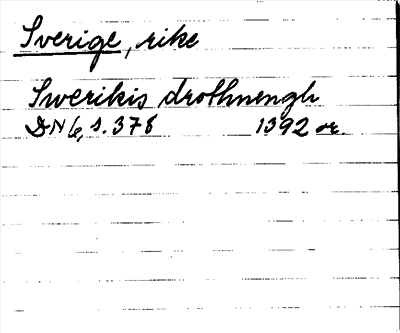 Sverige, rike
Swerikis drothnengh
DN 6, s. 378
1392 or.